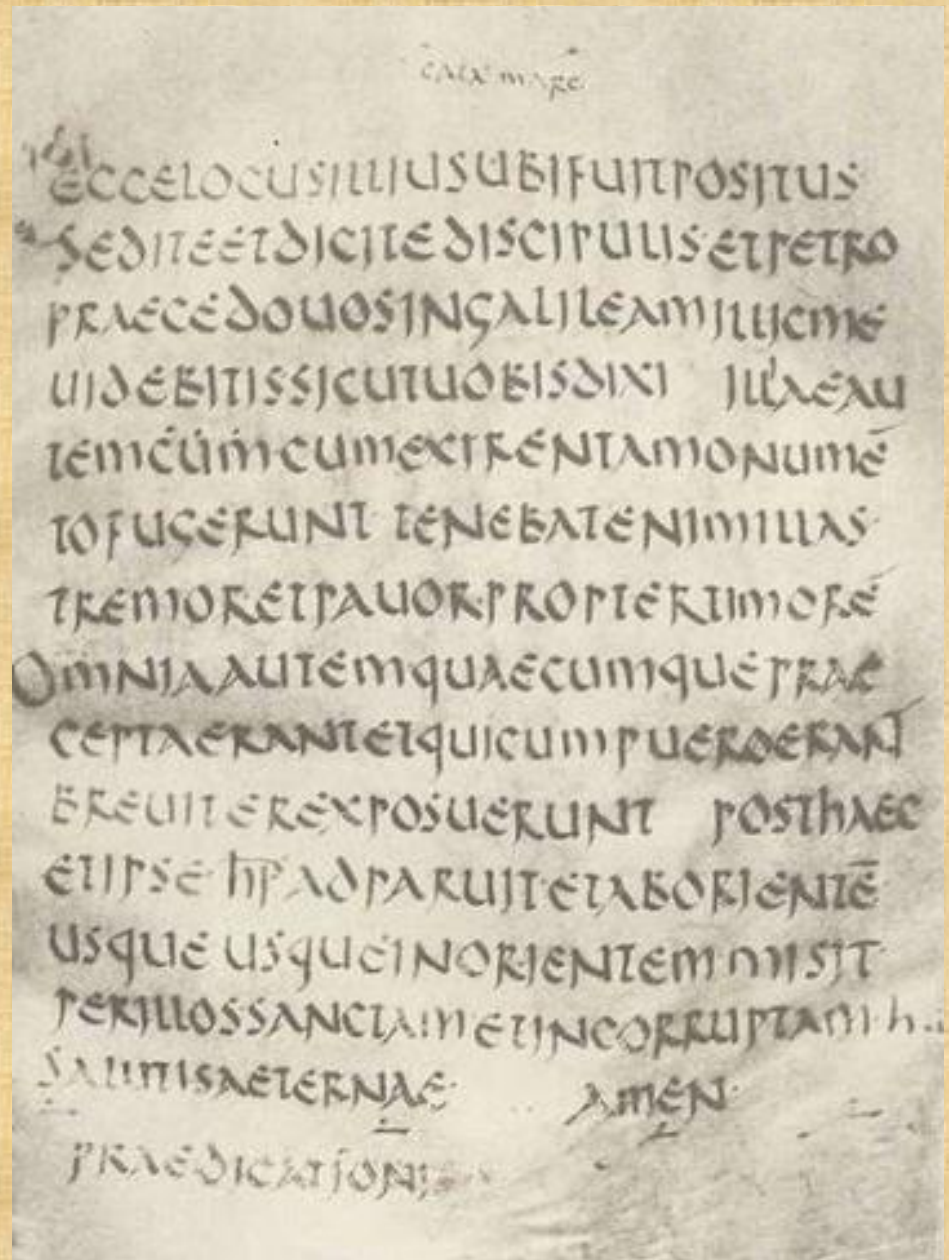 ibi
ECCELOCUSILLIUSUBIFUITPOSITUS
SEDITEETDICITEDISCIPULIS·ETPETRO
PRAECEDOUOSINGALILEAMILLICME
UIDEBITISSICUTUOBISDIXI ILLAEAU
TEMCUM·CUMEXIRENTAMONUMĒ
TOFUGERUNT TENEBATENIMILLAS
TREMORETPAUOR·PROPTERTIMORĒ
OMNIAAUTEMQUAECUMQUEPRAE
CEPTAERANTETQUICUMPUEROERANT
BREUITEREXPOSUERUNT POSTHAEC
ETIPSE·HP̄ADPARUITETABORIENTĒ
USQUE·USQUEINORIENTEMMISIT
PERILLOSSANCTAMETINCORRUPTAM·H
SALUTISAETERNAE· AMEN
PRAEDICATIONI